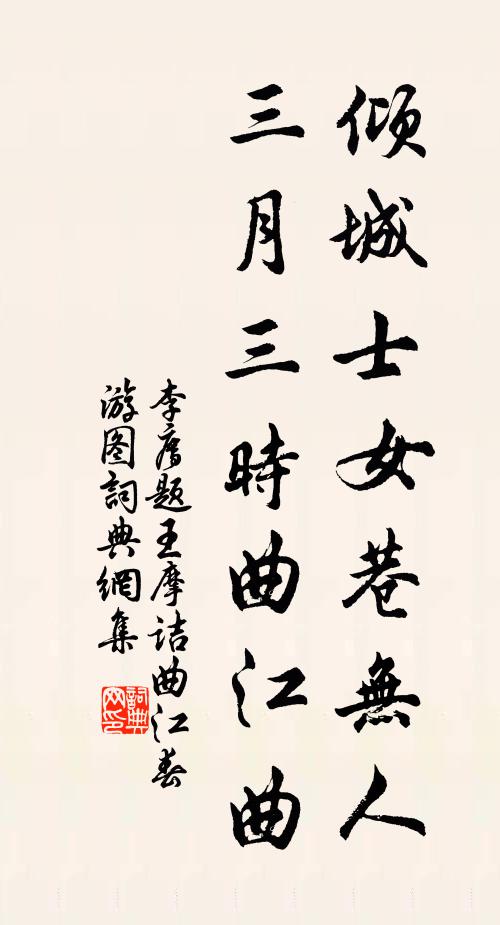 傾城士女巷無人
三月三時曲江曲
李廌题王摩詰曲江春
游图詞典網集
詞典
网印